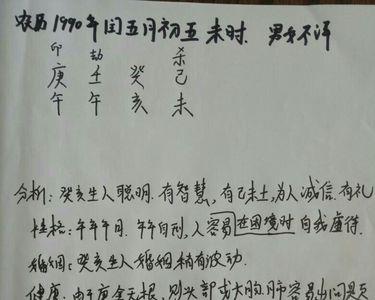 农历1990年闰五月初五 未时. 男女不详
卯 劫 杀
庚 壬 癸 己
午 午 亥 未
分析: 癸亥生人聪明. 有智慧, 有己未土, 为人诚信. 有礼
性格: 午年午月. 午午自刑, 人容易在困境时 自我虐待.
婚姻: 癸亥生人婚姻稍有波动.
健康: 由于庚金无根, 则头部或大肠 容易出问题